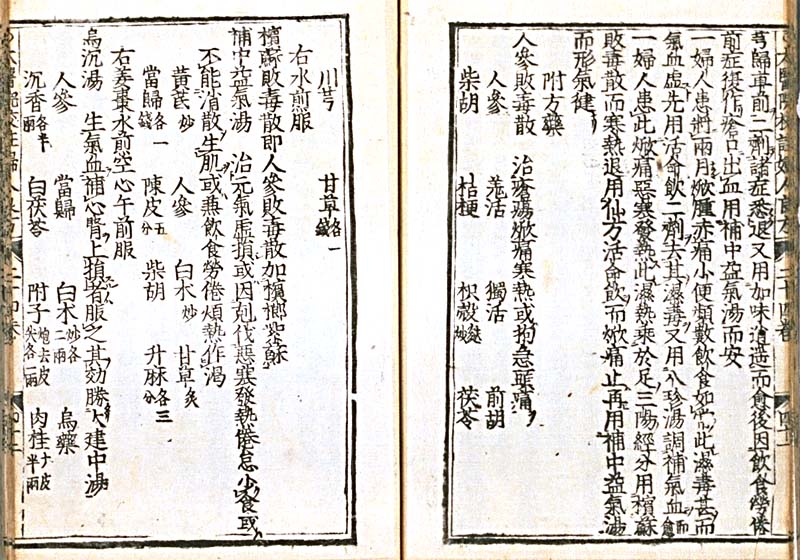 芎歸再煎二劑諸症悉退又用加味逍遙而愈後因飲食勞倦
前症復作瘡口出血用補中益氣湯而安
一婦人患將兩月焮腫赤痛小便頻數飲食如常此濕毒甚而
氣血虛先用活命飲二劑去其濕毒又用八珍湯調補氣血而愈
一婦人患此焮痛惡寒發熱此濕熱乘於足三陽經分用檳蘇
敗毒散而寒熱退用仙方活命飲而焮痛止再用補中益氣湯
而形氣健
附方藥
人參敗毒散 治瘡瘍焮痛寒熱或拘急頭痛
人參 羌活 獨活 前胡
柴胡 桔梗 枳殼麩炒 茯苓
川芎 甘草各一錢
右水煎服
檳蘇敗毒散即人參敗毒散加檳榔紫蘇
補中益氣湯 治元氣虛損或因剋伐惡寒發熱倦怠少食或
不能消散生肌或兼飲食勞倦煩熱作渴
黃芪炒 人參 白朮炒 甘草炙
當歸各一錢 陳皮五分 柴胡 升麻各三
右姜棗水煎空心午前服
烏沉湯 生氣血補心腎上損者服之其効勝大建中湯
人參 當歸 白朮炒各二兩 烏藥
沉香各半兩 白茯苓 附子炮去皮尖各一兩 肉桂去皮半兩